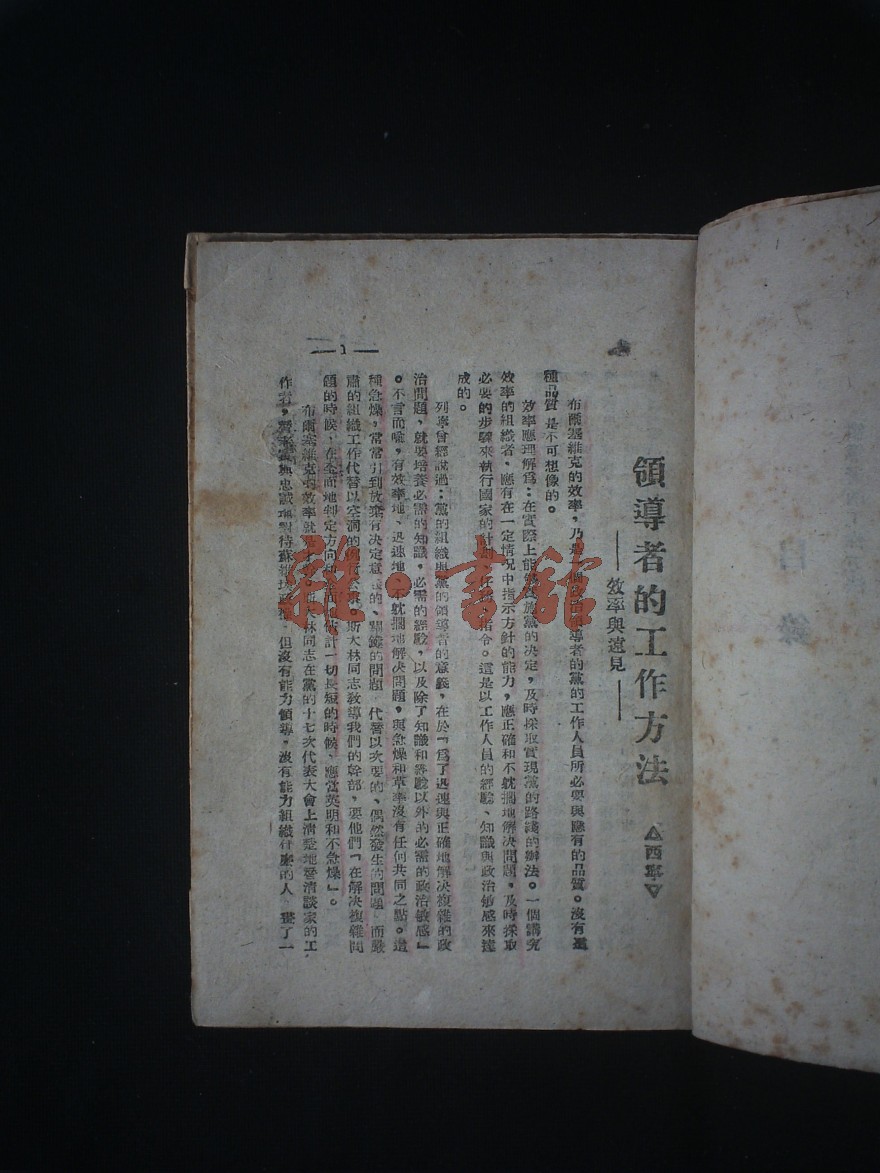 領導者的工作方法
——效率與遠見——
△西寧▽
布爾塞維克的效率,乃是一個政治領導者的黨的工作人員所必要與應有的品質。沒有這
種品質是不可想像的。
效率應理解為:在實際上能實施黨的決定,及時採取實現黨的路綫的辦法。一個講究
效率的組織者,應有在一定情況中指示方針的能力,應正確和不躭擱地解決問題,及時採取
必要的步驟來執行國家的計劃、任務、指令。這是以工作人員的經驗、知識與政治敏感來達
成的。
列寧曾經說過:黨的組織與黨的領導者的意義,在於『為了迅速與正確地解決複雜的政
治問題,就要培養必需的知識,必需的經驗,以及除了知識和經驗以外的必需的政治敏感』
。不言而喻,有效率地、迅速地、不躭擱地解決問題,與急燥和草率沒有任何共同之點。這
種急燥,常常引到放棄有決定意義的、關鍵的問題 代替以次要的、偶然發生的問題 而嚴
肅的組織工作代替以空洞的 斯大林同志教導我們的幹部,要他們『在解決複雜問
題的時候,在全面地判定方向和全面地估計一切長短的時候、應當英明和不急燥』。
布爾塞維克的效率就是 斯大林同志在黨的十七次代表大會上清楚地 清談家的工
作者, 與忠誠 對待蘇維埃政權,但沒有能力領導,沒有能力組織什麼的人 畫了一
— 1 —
雜·書館
目錄